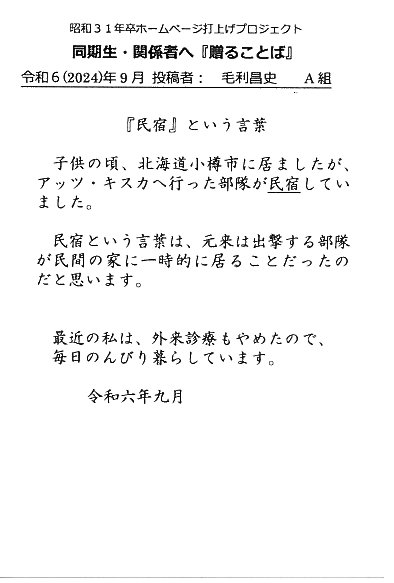 昭和３１年卒ホームページ打上げプロジェクト
同期生・関係者へ『贈ることば』
令和６(2024)年９月 投稿者： 毛利昌史 Ａ組
『民宿』という言葉
子供の頃、北海道小樽市に居ましたが、
アッツ・キスカへ行った部隊が民宿してい
ました。
民宿という言葉は、元来は出撃する部隊
が民間の家に一時的に居ることだったの
だと思います。
最近の私は、外来診療もやめたので、
毎日のんびり暮らしています。
令和六年九月